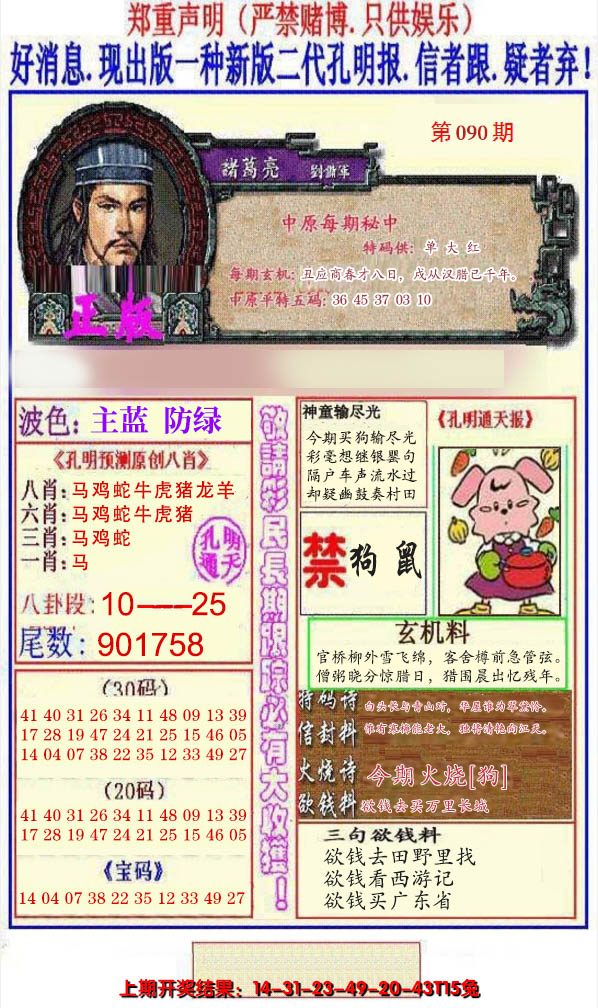 郑重声明（严禁赌博.只供娱乐）
好消息.现出版一种新版二代孔明报.信者跟.疑者弃！
第090期
諸葛亮
中原每期秘中
特码供：单 大 红
每期玄机：丑应商春才八日，戌从汉腊已千年。
中原平特五码：36 45 37 03 10
正版
波色：主蓝 防绿
《孔明预测原创八肖》
八肖：马鸡蛇牛虎猪龙羊
六肖：马鸡蛇牛虎猪
三肖：马鸡蛇
一肖：马
孔明
通天
八卦段：10——25
尾数：901758
(30码)
41 40 31 26 34 11 48 09 13 39
17 28 19 47 24 21 25 15 46 05
14 04 07 38 22 35 12 33 49 27
(20码)
41 40 31 26 34 11 48 09 13 39
17 28 19 47 24 21 25 15 46 05
《宝码》
14 04 07 38 22 35 12 33 49 27
敬請彩民長期跟踪必有大收獲！
神童输尽光
今期买狗输尽光
彩毫想继银罂句
隔户车声流水过
却疑幽鼓奏村田
《孔明通天报》
禁 狗 鼠
玄机料
官桥柳外雪飞绵，客舍樽前急管弦。
僧粥晓分惊腊日，猎围晨出忆残年。
特码诗
信封料
白头长与青山对，华屋谁为翠黛怜。
唯有寒梅能老大，独将清艳向江天。
火烧诗 今期火烧[狗]
欲钱料 欲钱去买万里长城
三句欲钱料
欲钱去田野里找
欲钱看西游记
欲钱买广东省
上期开奖结果：14-31-23-49-20-43T15兔